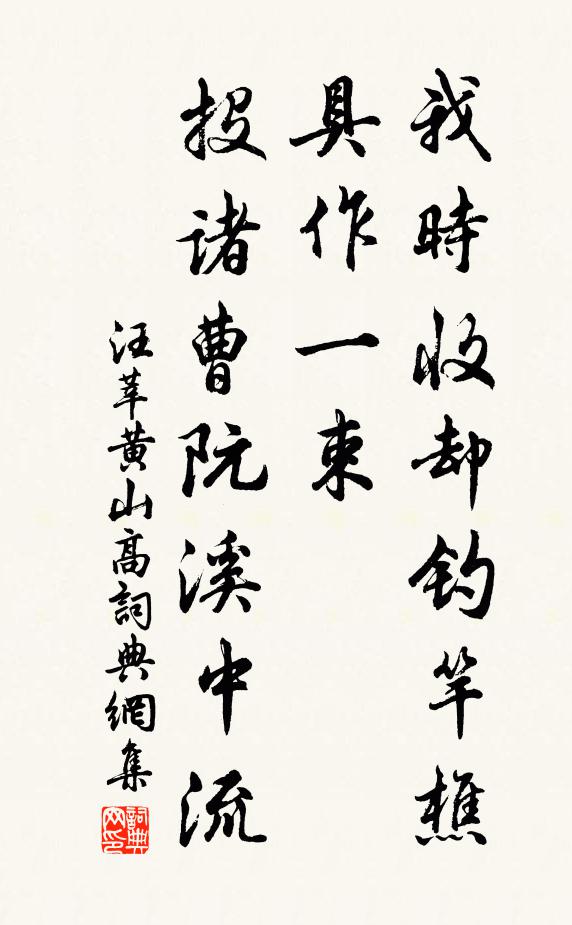 我時收却钓竿樵
具作一束
投诸曹阮溪中流
汪莘黄山高詞典網集
詞典網印